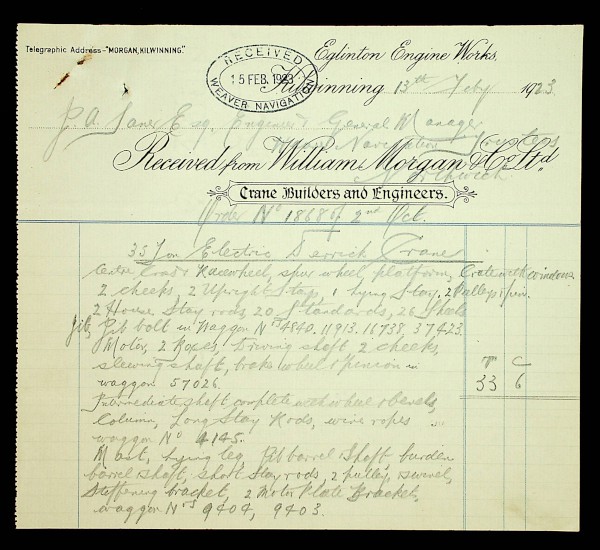 Telegraphic Address-"MORGAN, KILWINNING."
RECEIVED
15 FEB. 1923
WEAVER NAVIGATION
Eglinton Engine Works,
Kilwinning 13th Feby 1923
J. A. Saner Esq. Engineer & General Manager
Weaver Navigation Trustees
Received from William Morgan & Co. Ltd.
Northwich
Crane Builders and Engineers.
Order No 18689 2nd Oct.
35 Ton Electric Derrick Crane
Centre Racewheel, spur wheel platform, Crate with windows
2 cheeks, 2 Upright Stays, 1 Lying Stay, 2 Pulleys & pin.
2 House Stay rods, 20 Standards, 26
Jib, Jib bolt in Waggon Nos 4840. 11913. 16738. 37423.
Motor, 2 Boxes, Driving shaft, 2 cheeks,
slewing shaft, brake wheel & pinion in
waggon 57026.
T C
33 6
Intermediate shaft complete with wheel & bevels,
Column, Long Stay Rods, wire ropes
waggon No 4145.
Mast, Lying leg, Jib barrel shaft, burden
barrel shaft, short stay rods, 2 pulley, swivel,
Stiffening bracket, 2 Motor Plate Bracket,
waggon Nos 9404, 9403.